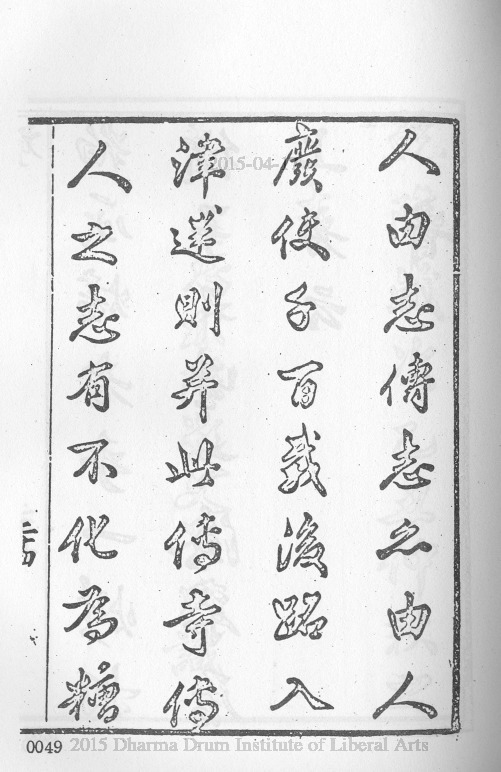 人由志傳志亦由人
廢使千百載後路入
津迷則并此傳寺傳
人之志有不化為糟
0049 2015 Dharma Drum Institute of Liberal Arts